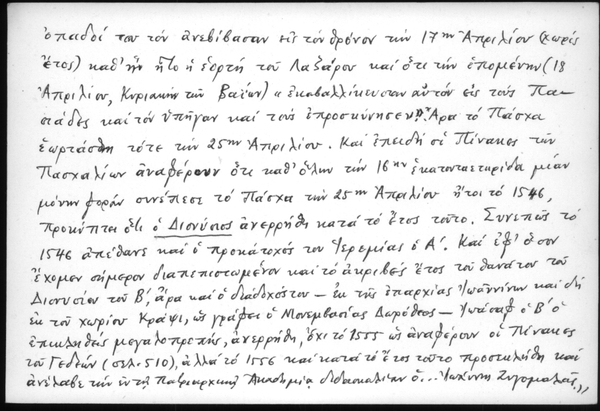 ὀπαδοί του τόν ἀνεβίβασαν εἰς τόν θρόνον τήν 17ην Ἀπριλίου (χωρίς
ἔτος) καθ' ἥν ἦτο ἡ ἑορτή τοῦ Λαζάρου καί ὅτι τήν ἑπομένην (18
Ἀπριλίου, Κυριακήν τῶν Βαΐων) « ἐκαβαλλίκευσαν αὐτόν εἰς τούς Πα-
σιάδες καί τόν ὑπῆγαν καί τούς ἐπροσκύνησεν». Ἄρα τό Πάσχα
ἑωρτάσθη τότε τήν 25ην Ἀπριλίου. Καί ἐπειδή οἱ Πίνακες τῶν
Πασχαλίων ἀναφέρουν ὅτι καθ' ὅλην τήν 16ην ἑκατονταετηρίδα μίαν
μόνην φοράν συνέπεσε τό Πάσχα τήν 25ην Ἀπριλίου ἤτοι τό 1546,
προκύπτει ὅτι ὁ Διονύσιος ἀνερρήθη κατά τό ἔτος τοῦτο. Συνεπῶς τό
1546 ἀπέθανε καί ὁ προκάτοχός του Ἱερεμίας ὁ Α΄. Καί ἐφ' ὅσον
ἔχομεν σήμερον διαπεπιστωμένον καί τό ἀκριβές ἔτος τοῦ θανάτου τοῦ
Διονυσίου τοῦ Β΄, ἄρα καί ὁ διάδοχός του – ἐκ τῆς ἐπαρχίας Ἰωαννίνων καί δή
ἐκ τοῦ χωρίου Κράψι, ὡς γράφει ὁ Μονεμβασίας Δωρόθεος – Ἰωάσαφ ὁ Β΄ ὁ
ἐπικληθείς μεγαλοπρεπής, ἀνερρήθη, ὄχι τό 1555 ὡς ἀναφέρουν οἱ Πίνακες
τοῦ Γεδεών (σελ. 510), ἀλλά τό 1556 καί κατά τό ἔτος τοῦτο προσεκλήθη καί
ἀνέλαβε τήν ἐν τῇ Πατριαρχικῇ Ἀκαδημίᾳ διδασκαλίαν ὁ... Ἰωάννης Ζυγομαλᾶς,,